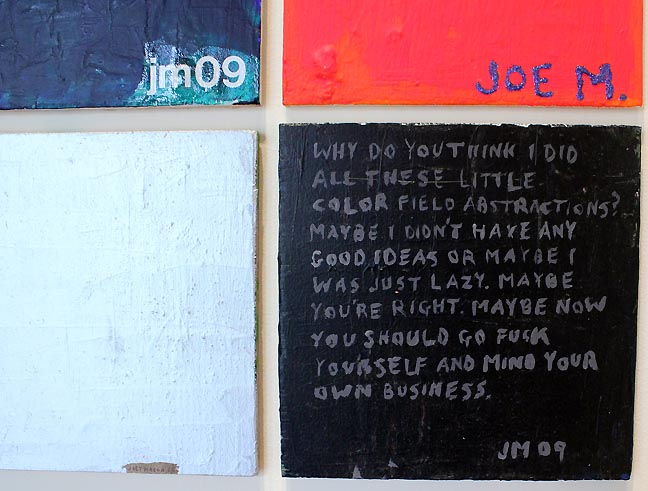 jm09
JOE M.
WHY DO YOU THINK I DID
ALL THESE LITTLE
COLOR FIELD ABSTRACTIONS?
MAYBE I DIDN'T HAVE ANY
GOOD IDEAS OR MAYBE I
WAS JUST LAZY. MAYBE
YOU'RE RIGHT. MAYBE NOW
YOU SHOULD GO FUCK
YOURSELF AND MIND YOUR
OWN BUSINESS.
JM 09